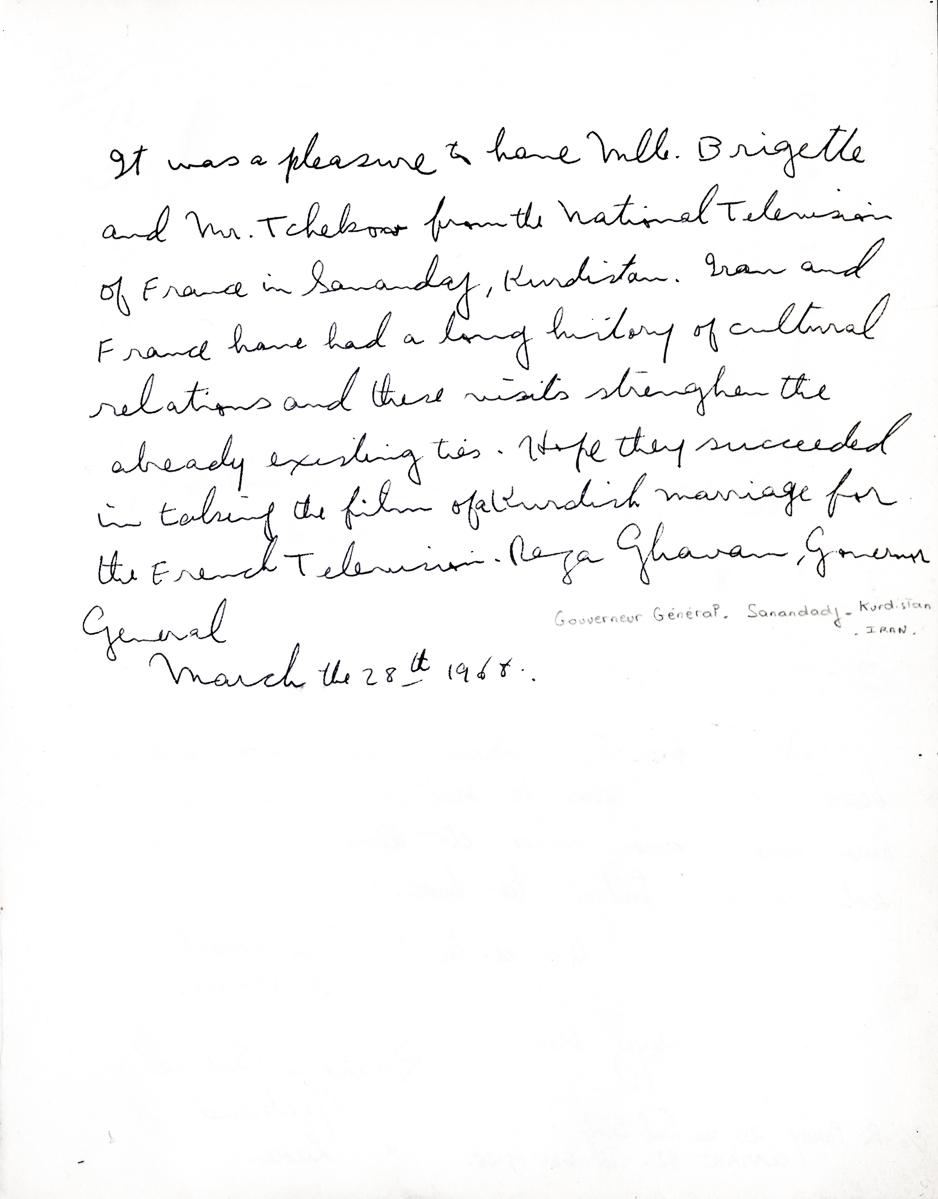 It was a pleasure to have Mlle. Brigette
and Mr. Tchekow from the National Television
of France in Sanandaj, Kurdistan. Iran and
France have had a long history of cultural
relations and these visits strenghen the
already existing ties. Hope they succeeded
in taking the film of a Kurdish marriage for
the French Television. Reza Ghavam, Governor
General
Gouverneur Général. Sanandadj - Kurdistan
. IRAN.
March the 28th